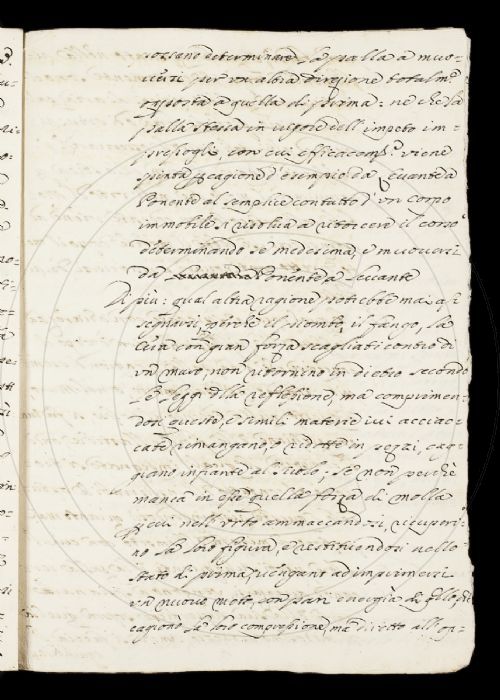 possano determinare la palla a muo-
versi per un altra direzione totalm.e
opposta a quella di prima: nè che la
palla stessa in vigore dell' impeto im-
pressogli, con cui efficacem.e viene
spinta p cagione d'esempio da Levante a
Ponente al semplice contatto d'un corpo
immobile si risolva a ritorcere il corso
determinando se medesima, è muoversi
da Ponente a Levante
Di più: qual altra ragione potrebbe mai as-
segnarsi, perchè il piombo, il fango, la
Cera con gran forza scagliati contro di
un muro, non ritornino in dietro secondo
le leggi d.lla reflessione, ma comprimen-
dosi queste, e simili materie ivi acciac-
cate rimangano, o ridotte in pezzi, cag-
giano infrante al suolo; se non perchè
manca in esse quella forza di molla
p cui nell' urto ammaccandosi, recuperi-
no la loro figura, e restituendosi nello
stato di prima, vengano ad imprimersi
un nuovo moto, con pari energia di q.llo pri
cagionò la loro compressione, ma diretto all' op-